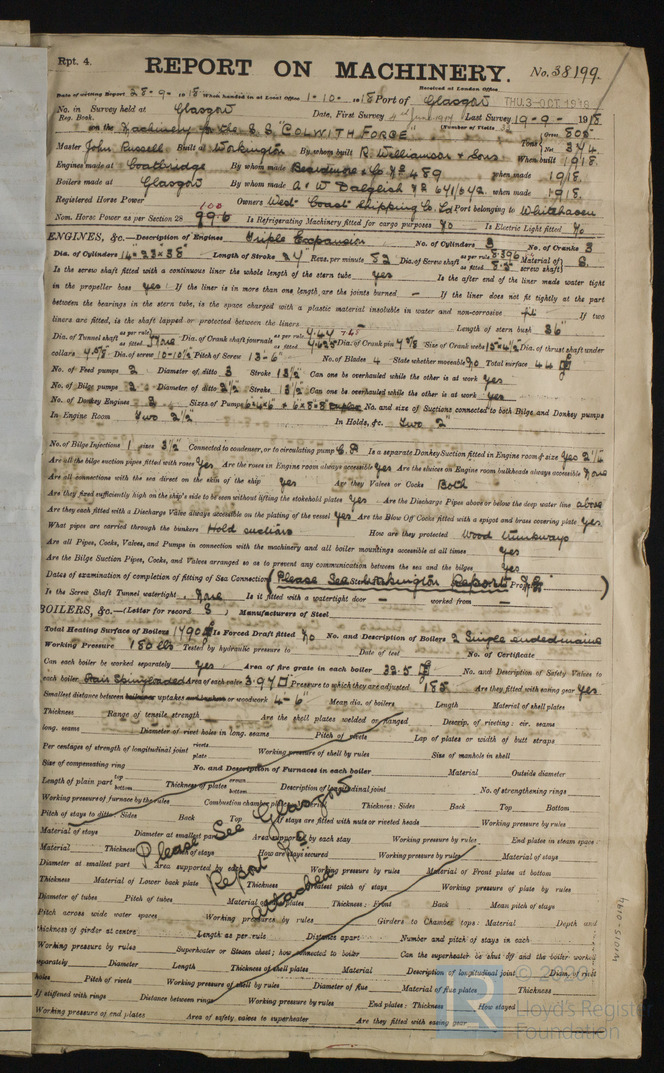 Rpt. 4.
REPORT ON MACHINERY. No. 38199.
Received at London Office
Date of writing Report 28-9-1918 When handed in at Local Office 1-10-1918 Port of Glasgow THU.3-OCT.1918
No. in Survey held at Glasgow Date, First Survey Last Survey 19-9-1918
Reg. Book. (Number of Visits
on the Machinery for the S.S. "COLWITH FORCE" Tons Gross 805 Net 344
Master John Russell Built at Workington By whom built R. Williamson & Sons When built 1918
Engines made at Coatbridge By whom made Beardmore & Co No 489 when made 1918
Boilers made at Glasgow By whom made A & W Dalglish No 641/642 when made 1918
Registered Horse Power Owners West Coast Shipping Co. Ld Port belonging to Whitehaven
Nom. Horse Power as per Section 28 100 99.6 Is Refrigerating Machinery fitted for cargo purposes No Is Electric Light fitted No
ENGINES, &c.—Description of Engines Triple Expansion No. of Cylinders 3 No. of Cranks 3
Dia. of Cylinders 14"-23"-38" Length of Stroke 24 Revs. per minute 82 Dia. of Screw shaft as per rule 8.396 as fitted 8.5" Material of screw shaft S.
Is the screw shaft fitted with a continuous liner the whole length of the stern tube yes Is the after end of the liner made water tight
in the propeller boss yes If the liner is in more than one length, are the joints burned — If the liner does not fit tightly at the part
between the bearings in the stern tube, is the space charged with a plastic material insoluble in water and non-corrosive If two
liners are fitted, is the shaft lapped or protected between the liners Length of stern bush 36"
Dia. of Tunnel shaft as per rule as fitted None Dia. of Crank shaft journals as per rule 7.44 as fitted 7.625 Dia. of Crank pin 7 5/8 Size of Crank webs 15×4 1/2 Dia. of thrust shaft under
collars 7 5/8 Dia. of screw 10-10 1/2 Pitch of Screw 13-6" No. of Blades 4 State whether moveable No Total surface 44
No. of Feed pumps 2 Diameter of ditto 3 Stroke 13 1/2 Can one be overhauled while the other is at work yes
No. of Bilge pumps 2 Diameter of ditto 3 1/2 Stroke 13 1/2 Can one be overhauled while the other is at work yes
No. of Donkey Engines Sizes of Pumps No. and size of Suctions connected to both Bilge and Donkey pumps
In Engine Room Two 2 1/2 In Holds, &c. Two 2"
No. of Bilge Injections 1 sizes 3 1/2 Connected to condenser, or to circulating pump C.P. Is a separate Donkey Suction fitted in Engine room & size yes 2 1/2
Are all the bilge suction pipes fitted with roses yes Are the roses in Engine room always accessible yes Are the sluices on Engine room bulkheads always accessible None
Are all connections with the sea direct on the skin of the ship yes Are they Valves or Cocks Both
Are they fixed sufficiently high on the ship's side to be seen without lifting the stokehold plates yes Are the Discharge Pipes above or below the deep water line above
Are they each fitted with a Discharge Valve always accessible on the plating of the vessel yes Are the Blow Off Cocks fitted with a spigot and brass covering plate yes
What pipes are carried through the bunkers Hold suctions How are they protected Wood trunkways
Are all Pipes, Cocks, Valves, and Pumps in connection with the machinery and all boiler mountings accessible at all times yes
Are the Bilge Suction Pipes, Cocks, and Valves arranged so as to prevent any communication between the sea and the bilges yes
Dates of examination of completion of fitting of Sea Connections (Please See Workington Report)
Is the Screw Shaft Tunnel watertight None Is it fitted with a watertight door — worked from —
BOILERS, &c.—(Letter for record S) Manufacturers of Steel
Total Heating Surface of Boilers 1790 Is Forced Draft fitted No No. and Description of Boilers 2 Single ended marine
Working Pressure 180 lbs Tested by hydraulic pressure to Date of test No. of Certificate
Can each boiler be worked separately yes Area of fire grate in each boiler 33.5 No. and Description of Safety Valves to
each boiler Pair Spring loaded Area of each valve 3.97 Pressure to which they are adjusted 185 Are they fitted with easing gear yes
Smallest distance between boilers or uptakes and bunkers or woodwork 4-6" Mean dia. of boilers Length Material of shell plates
Thickness Range of tensile strength Are the shell plates welded or flanged Descrip. of riveting: cir. seams
long. seams Diameter of rivet holes in long. seams Pitch of rivets Lap of plates or width of butt straps
Per centages of strength of longitudinal joint rivets plate Working pressure of shell by rules Size of manhole in shell
Size of compensating ring No. and Description of Furnaces in each boiler Material Outside diameter
Length of plain part top bottom Thickness of plates crown bottom Description of longitudinal joint No. of strengthening rings
Working pressure of furnace by the rules Combustion chamber plates: Material Thickness: Sides Back Top Bottom
Pitch of stays to ditto: Sides Back Top If stays are fitted with nuts or riveted heads Working pressure by rules
Material of stays Diameter at smallest part Area supported by each stay Working pressure by rules End plates in steam space:
Material Thickness Pitch of stays How are stays secured Working pressure by rules Material of stays
Diameter at smallest part Area supported by each Working pressure by rules Material of Front plates at bottom
Thickness Material of Lower back plate Thickness Greatest pitch of stays Working pressure of plate by rules
Diameter of tubes Pitch of tubes Material of tube plates Thickness: Front Back Mean pitch of stays
Pitch across wide water spaces Working pressures by rules Girders to Chamber tops: Material Depth and
thickness of girder at centre Length as per rule Distance apart Number and pitch of stays in each
Working pressure by rules Superheater or Steam chest; how connected to boiler Can the superheater be shut off and the boiler worked
separately Diameter Length Thickness of shell plates Material Description of longitudinal joint Diam. of rivet
holes Pitch of rivets Working pressure of shell by rules Diameter of flue Material of flue plates Thickness
If stiffened with rings Distance between rings Working pressure by rules End plates: Thickness How stayed
Working pressure of end plates Area of safety valves to superheater Are they fitted with easing gear
Please See Glasgow
Report
attached
W1015-0194
© 2020
Lloyd's Register
Foundation